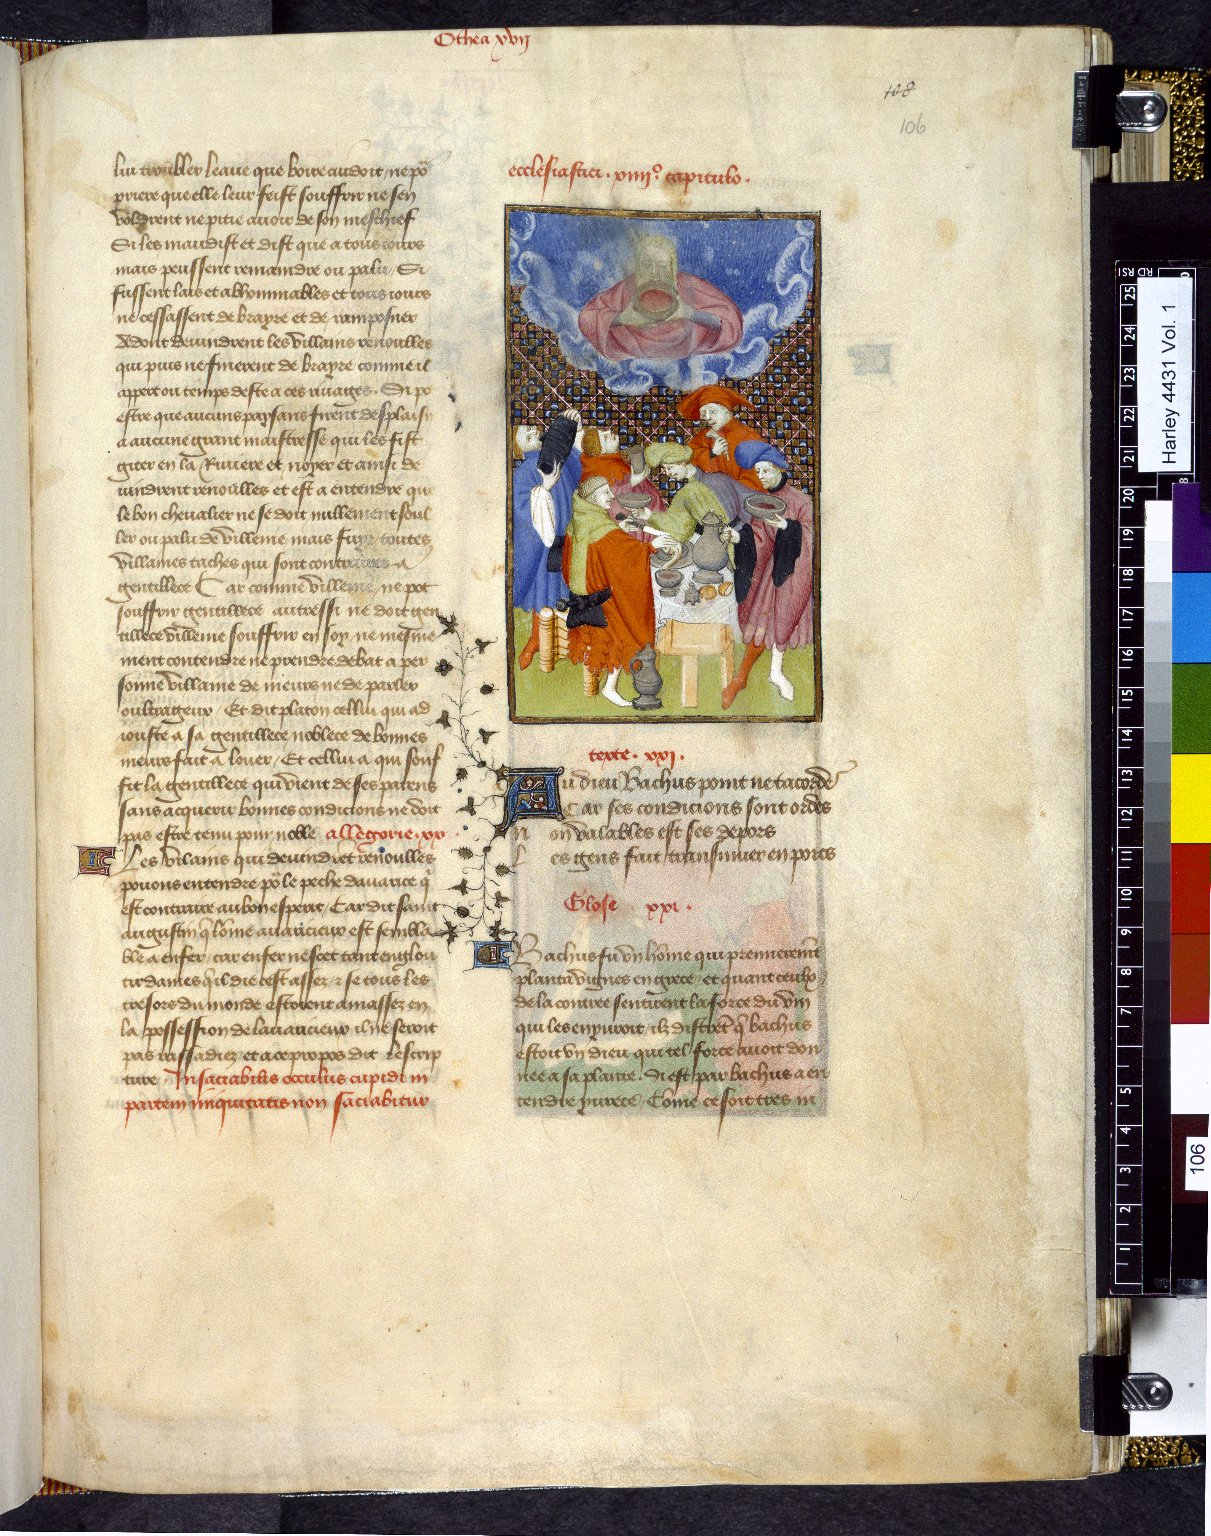 Othea xvij
108
106
lui troubler leaue que boire cuidoit / ne por
priere que elle leur feist souffrir ne sen
voldrent ne pitie auoir de son meschief
Si les maudist et dist que a tous iours
mais peussent remaindre ou palu / Si
fussent lais et abhominables et tous iours
ne cessassent de brayre et de ramposner
dont deuindrent les villains renoulles
qui puis ne finerent de brayre comme il
appert ou temps deste a ces riuages . Si po
estre que aucuns paysans firent desplaisir
a aucune grant maistresse qui les fist
giter en la Riuiere et noyer et ainsi de
uindrent renoulles et est a entendre que
le bon cheualier ne se doit nullement soul
ler ou palu de villenie mais fuyr toutes
villaines taches qui sont contraires a
gentillece Car comme villenie ne pot
souffrir gentillece autressi ne doit gen
tillece villenie souffrir en soy ne mesme
ment contendre ne prendre debat a per
sonne villaine de meurs ne de parler
oultrageux / Et dit platon cellui qui ad
iouste a sa gentillece noblece de bonnes
meurs fait a louer / Et cellui a qui souf
fit la gentillece qui vient de ses parens
sans acquerir bonnes condicions ne doit
pas estre tenu pour noble allegorie . xx .
Les vilains qui deuindret renoulles
pouons entendre por le peche dauarice q
est contraire au bon esperit / Car dit saint
augustin q lome auaricieux est sembla
ble a enfer / car enfer ne scet tant englou
tir dames qil die cest assez / et se tous les
tresors du monde estoient amassez en
la possession de lauaricieux il ne seroit
pas rassadiez et a ce propos dit lescrip
ture / Insaciabilis occulus cupidi in
partem iniquitatis non saciabitur
ecclesiastici . xiiii° . capitulo .
texte . xxi .
Au dieu Bachus point ne tacordes
Car ses condicions sont ordes
Non valables est ses depors
Les gens fait transmuer en porcs
Glose xxi .
Bachus fu vn home qui premierement
planta vignes en grece / et quant ceulx
de la contree sentirent la force du vin
qui les enyuroit ilz distret q bachus
estoit vn dieu qui tel force auoit don
nee a sa plante . Si est par bachus a en
tendre yurece / Come ce soit tres in
Harley 4431 Vol. 1
106
25
24
23
22
21
20
19
18
17
16
15
14
13
12
11
10
9
8
7
6
5
4
3
2
1